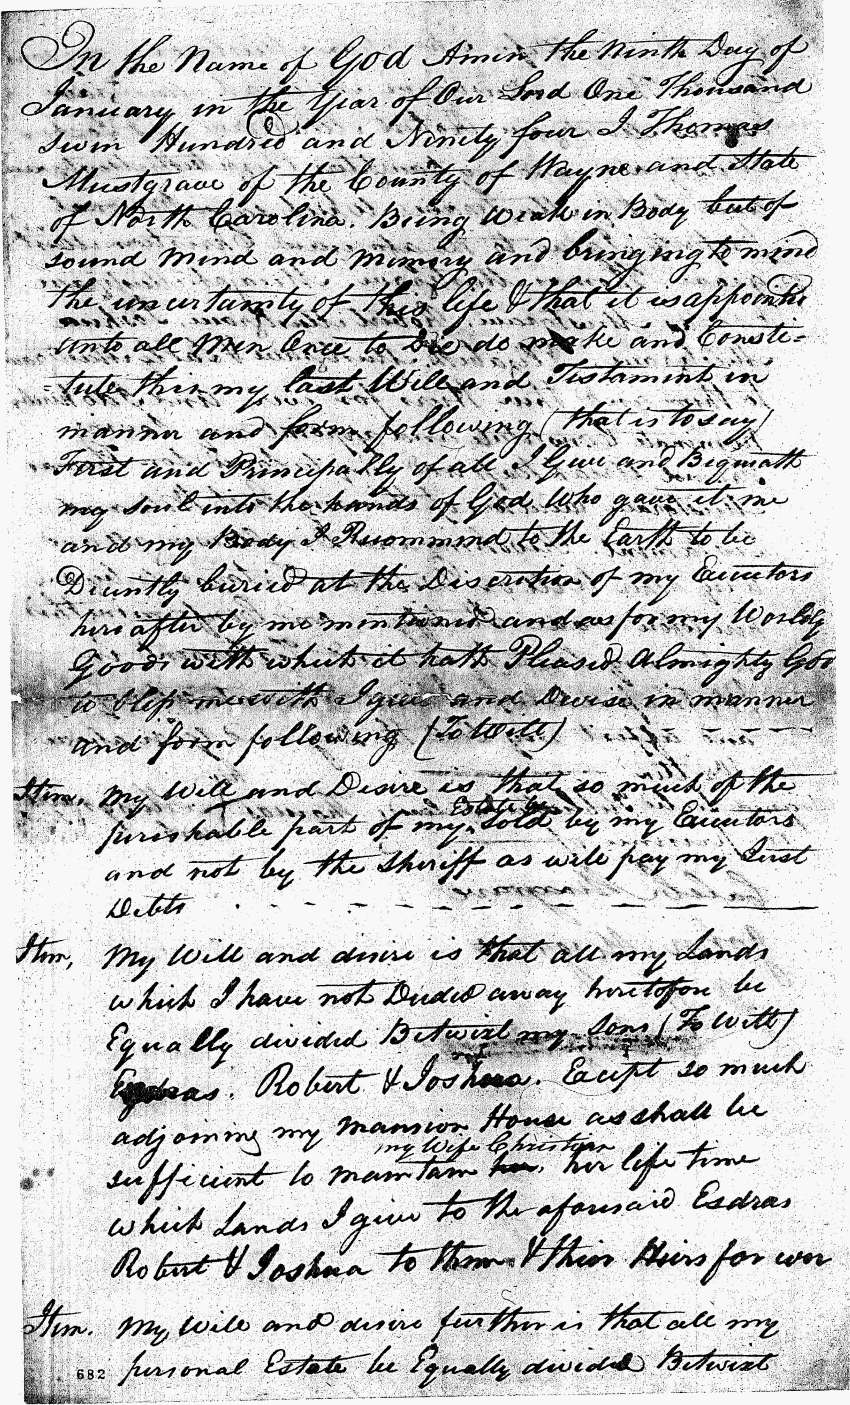 In the Name of God Amin the Ninth Day of
January in the Year of Our Lord One Thousand
Sevin Hundred and Ninety four I Thomas
Mustgrave of the County of Wayne and State
of North Carolina. Being Weak in Body but of
sound Mind and Mimory and bringing to mind
the uncertainty of this life & that it is appointed
unto all Men Once to Die do make and Consti=
=tute this my last Will and Tistamint in
manner and form following (that is to say)
First and Principally of all I Give and Biqueath
my soul into the hands of God Who gave it me
and my Body I Ricommind to the Earth to be
Dicintly buried at the Discretion of my Executors
hereafter by me mintioned and as for my Worldly
Goods with which it hath Pleased Almighty God
to bless me with I give and Devise in manner
and form following (To Witt)
Itim. My Will and Desire is that so much of the
perishable part of my Estate be Sold by my Executors
and not by the Sheriff as will pay my Just
Debts
Itim, My Will and disire is that all my Lands
which I have not Deeded away heretofore be
Equally divided Betwixt my Sons (To Witt)
Esdras. Robert & Joshua. Except so much
adjoining my Mansion House as shall be
sufficient to maintain my Wife Christian her life time
which Lands I give to the aforesaid Esdras
Robert & Joshua to them & thier Heirs for ever
Itim. My Will and disire further is that all my
personal Estate be Equally divided Betwixt
682